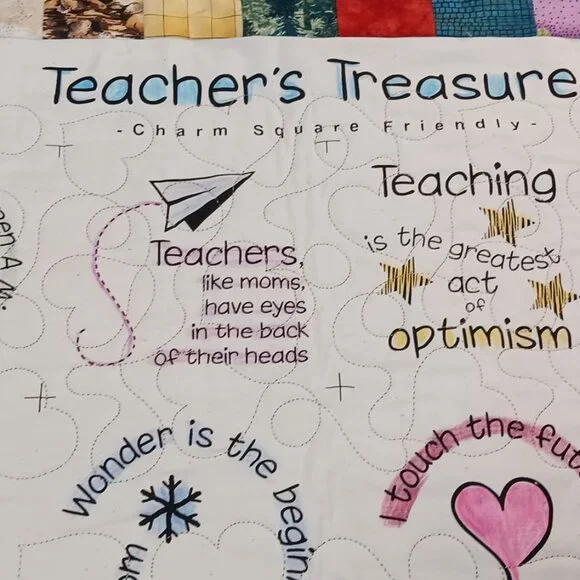 Teacher's Treasure
-Charm Square Friendly-
Teachers,
like moms,
have eyes
in the back
of their heads
Teaching
is the greatest
act
of
optimism
Wonder is the
I touch the